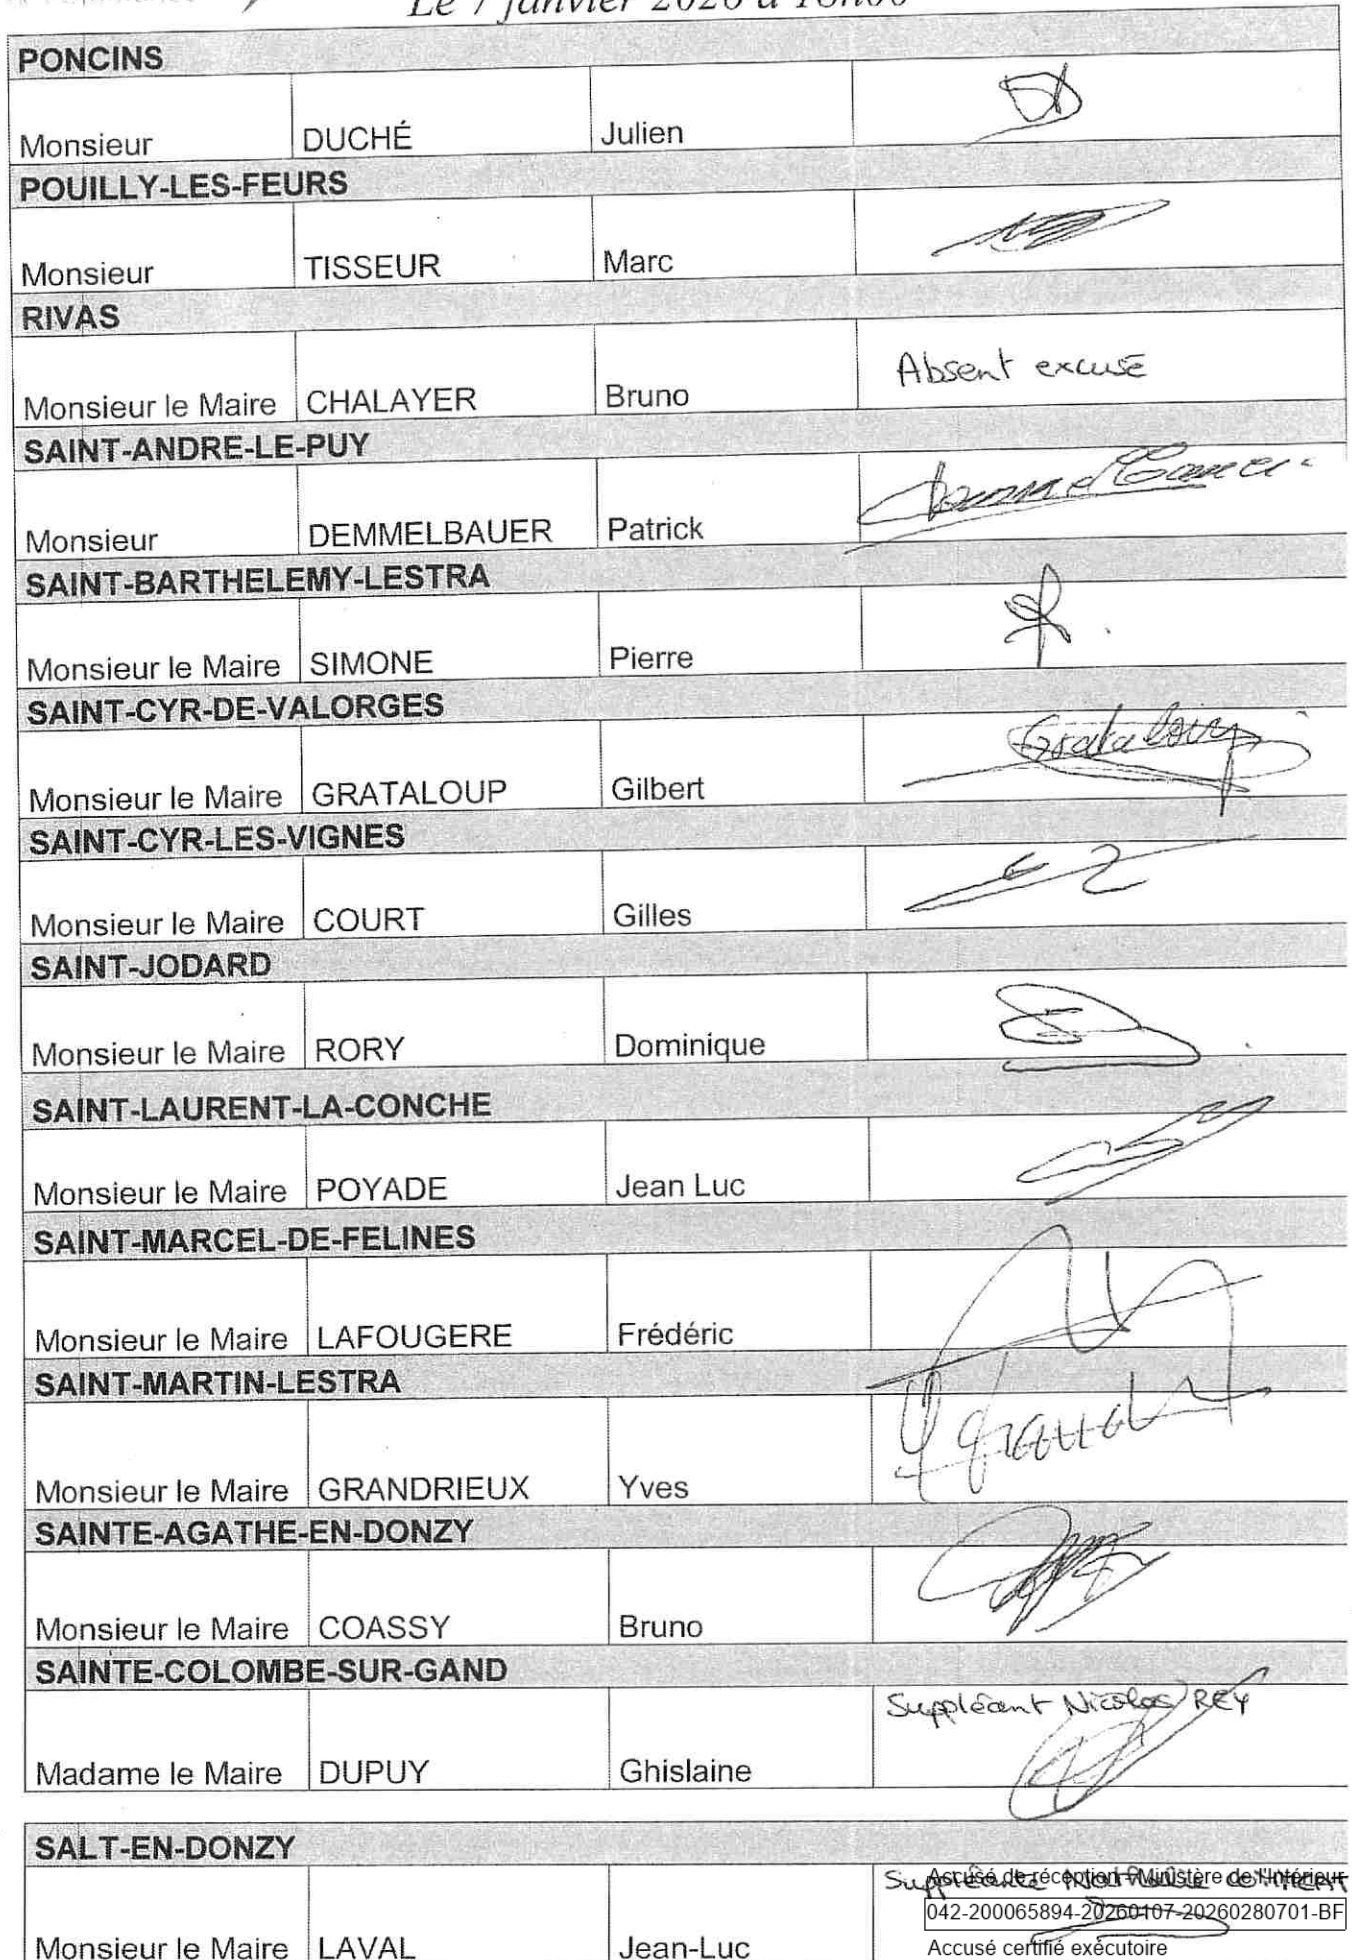 Le 7 janvier 2026 à 18h00
PONCINS
Monsieur DUCHÉ Julien
POUILLY-LES-FEURS
Monsieur TISSEUR Marc
RIVAS
Monsieur le Maire CHALAYER Bruno Absent excusé
SAINT-ANDRE-LE-PUY
Monsieur DEMMELBAUER Patrick
SAINT-BARTHELEMY-LESTRA
Monsieur le Maire SIMONE Pierre
SAINT-CYR-DE-VALORGES
Monsieur le Maire GRATALOUP Gilbert Grataloup
SAINT-CYR-LES-VIGNES
Monsieur le Maire COURT Gilles
SAINT-JODARD
Monsieur le Maire RORY Dominique
SAINT-LAURENT-LA-CONCHE
Monsieur le Maire POYADE Jean Luc
SAINT-MARCEL-DE-FELINES
Monsieur le Maire LAFOUGERE Frédéric
SAINT-MARTIN-LESTRA
Monsieur le Maire GRANDRIEUX Yves
SAINTE-AGATHE-EN-DONZY
Monsieur le Maire COASSY Bruno
SAINTE-COLOMBE-SUR-GAND
Suppléant Nicolas REY
Madame le Maire DUPUY Ghislaine
SALT-EN-DONZY
Suppléante
Accusé de réception - Ministère de l'Intérieur
042-200065894-20260107-20260280701-BF
Monsieur le Maire LAVAL Jean-Luc
Accusé certifié exécutoire